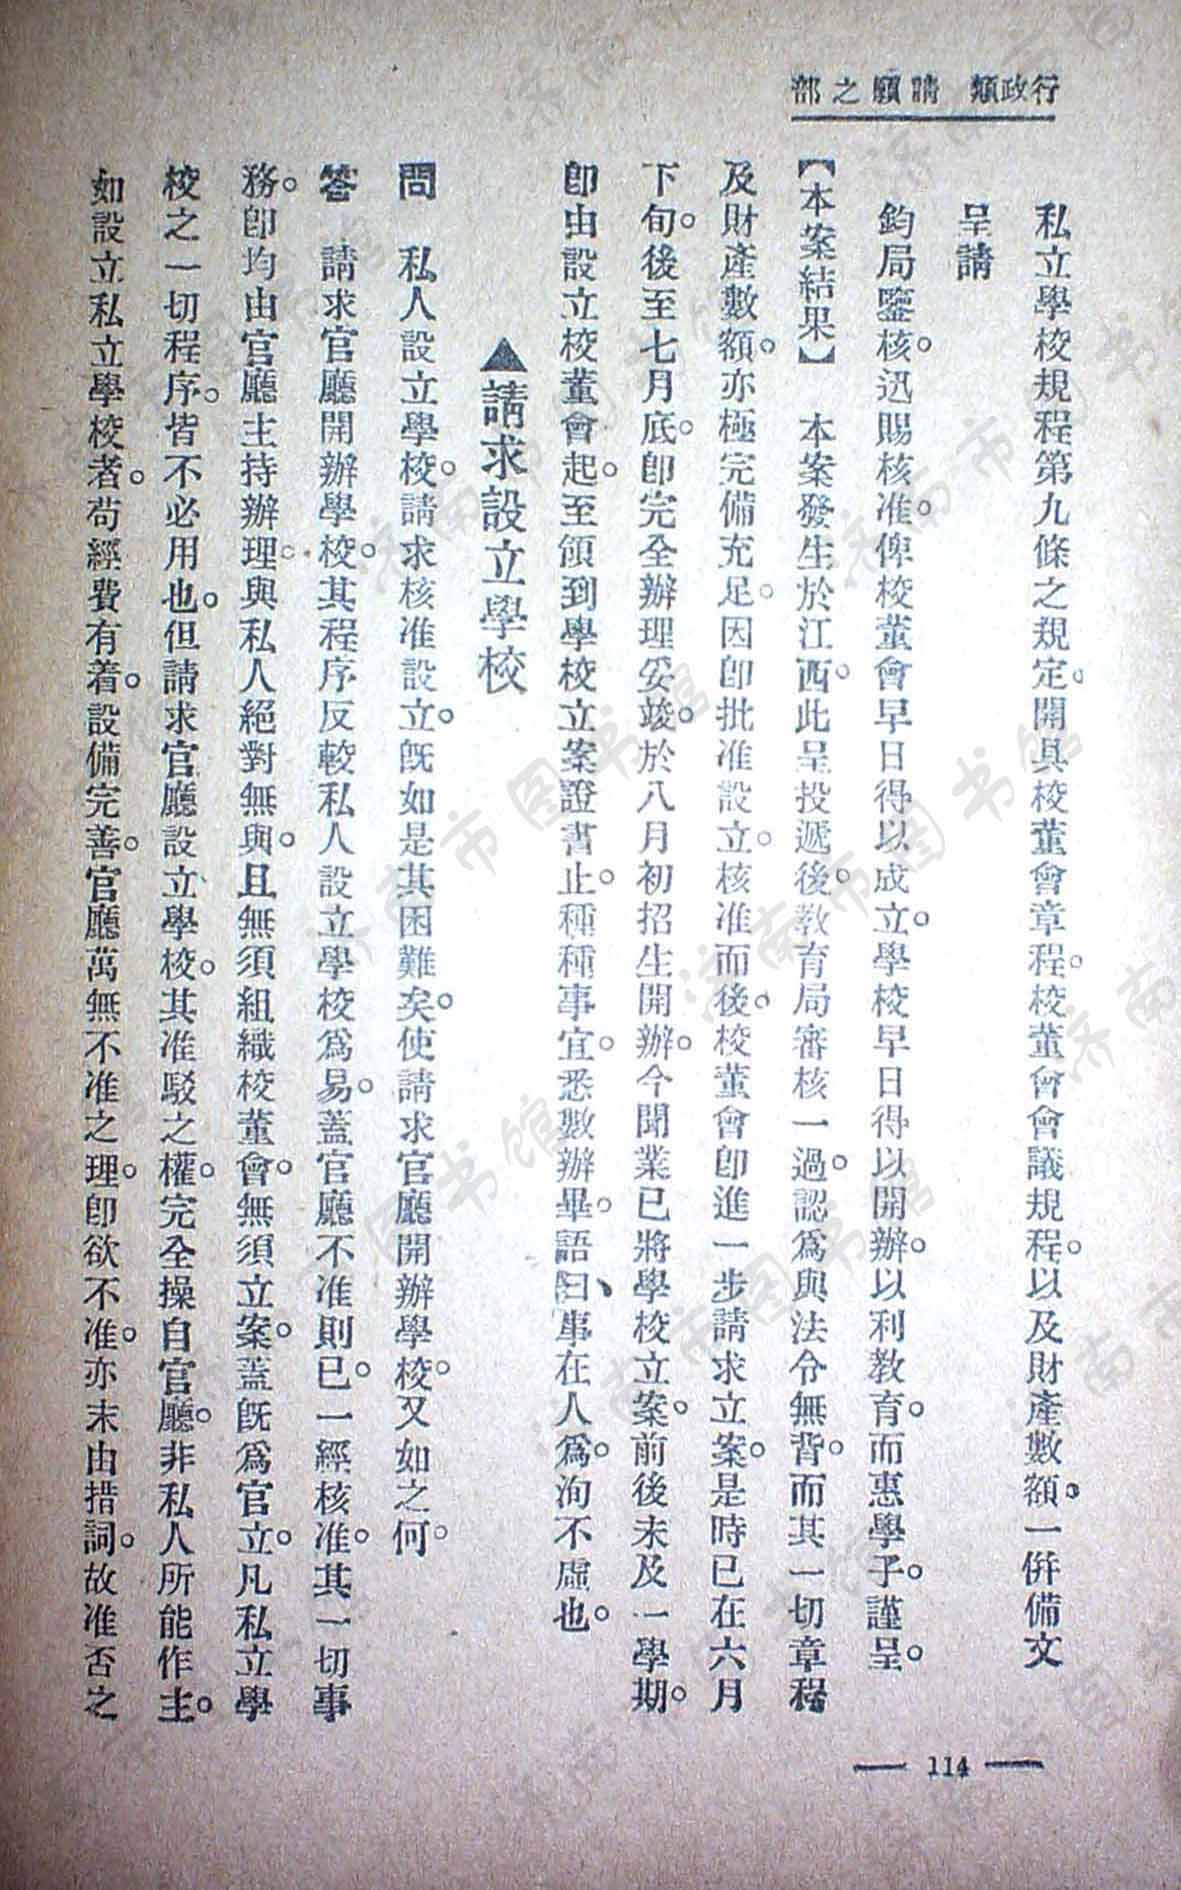 行政類 請願之部
私立學校規程第九條之規定。開具校董會章程。校董會會議規程。以及財產數額。一併備文
呈請
鈞局鑒核。迅賜核准。俾校董會早日得以成立。學校早日得以開辦。以利教育。而惠學子。謹呈。
【本案結果】 本案發生於江西。此呈投遞後。教育局審核一過。認爲與法令無背。而其一切章程
及財產數額。亦極完備充足。因即批准設立。核准而後。校董會即進一步請求立案。是時已在六月
下旬。後至七月底。即完全辦理妥竣。於八月初招生開辦。今聞業已將學校立案。前後未及一學期。
即由設立校董會起。至領到學校立案證書止。種種事宜。悉數辦畢。語曰、事在人爲。洵不虛也。
▲請求設立學校
問 私人設立學校。請求核准設立。既如是其困難矣。使請求官廳開辦學校。又如之何。
答 請求官廳開辦學校。其程序反較私人設立學校爲易。蓋官廳不准則已。一經核准。其一切事
務。即均由官廳主持辦理。與私人絕對無與。且無須組織校董會。無須立案。蓋既爲官立。凡私立學
校之一切程序。皆不必用也。但請求官廳設立學校。其准駁之權。完全操自官廳。非私人所能作主。
如設立私立學校者。苟經費有着。設備完善。官廳萬無不准之理。即欲不准。亦末由措詞。故准否之
— 114 —
济南市图书馆